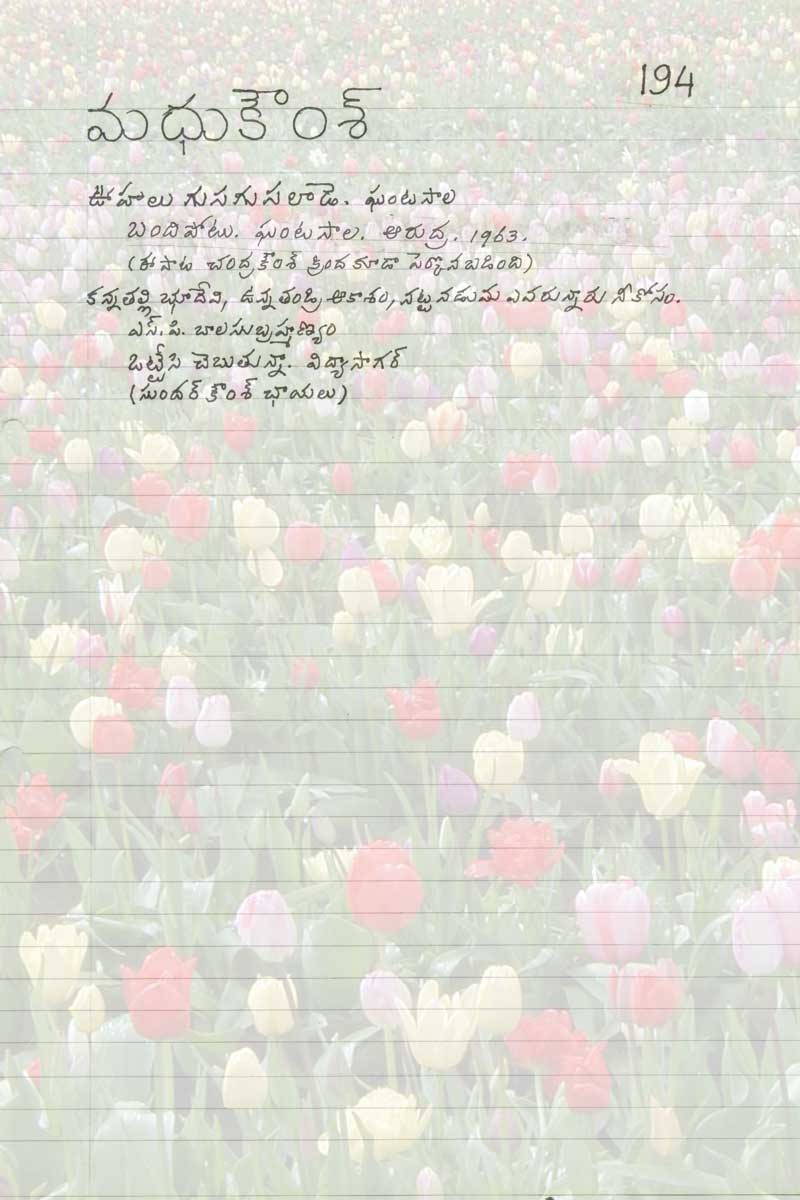 194
మధుకౌంశ్
ఊహలు గుసగుసలాడె. ఘంటసాల
బందిపోటు. ఘంటసాల. ఆరుద్ర. 1963.
(ఈ పాట చంద్రకౌంశ్ క్రింద కూడా పేర్కొనబడింది)
కన్నతల్లి భూదేవి, ఉన్న తండ్రి ఆకాశం, నట్టనడుమ ఎవరున్నారు నీకోసం.
ఎస్.పి. బాలసుబ్రహ్మణ్యం
ఒట్టేసి చెబుతున్నా. విద్యాసాగర్
(సుందర్ కౌంశ్ ఛాయలు)